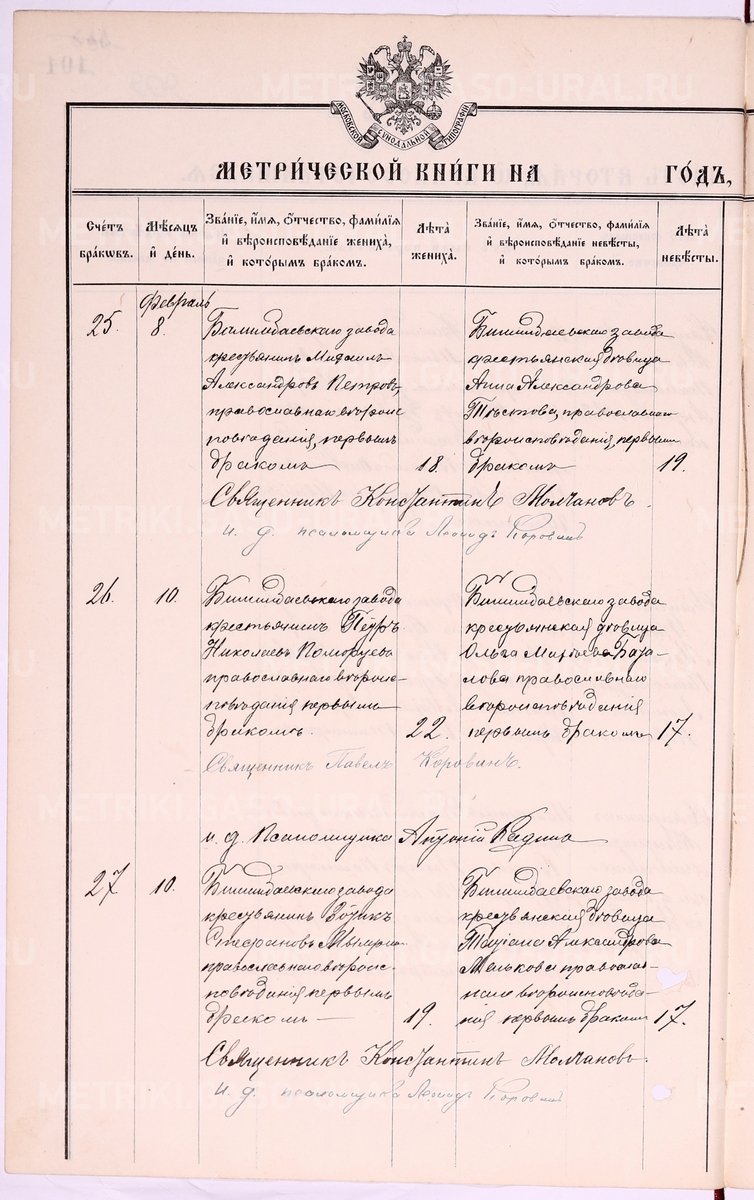 МОСКОВСКОЙ СѴНОДАЛЬНОЙ ТИПОГРАФІИ
МЕТРИ́ЧЕСКОЙ КНИ́ГИ НА ГО́ДЪ,
Сче́тъ бра́кѡвъ.
Мѣ́сяцъ и҆ де́нь.
Зва́нїе, и҆́мѧ, ѻ҆́тчество, фамѝлїѧ
и҆ вѣроисповѣ́данїе жениха̀,
и҆ кото́рымъ бра́комъ.
Лѣта̀ жениха̀.
Зва́нїе, и҆́мѧ, ѻ҆́тчество, фамѝлїѧ
и҆ вѣроисповѣ́данїе невѣ́сты,
и҆ кото́рымъ бра́комъ.
Лѣта̀ невѣ́сты.
Февраль
25. 8.
Билимбаевскаго завода
крестьянинъ Михаилъ
Александровъ Петровъ,
православнаго вѣроис
повѣданія, первымъ
бракомъ 18.
Билимбаевскаго завода
крестьянская дѣвица
Анна Александрова
православнаго
вѣроисповѣданія, первымъ
бракомъ 19.
Священникъ Константинъ Молчановъ.
и. д. псаломщика Леонидъ Коровинъ
26. 10.
Билимбаевскаго завода
крестьянинъ Петръ
Николаевъ
православнаго вѣроис-
повѣданія первымъ
бракомъ. 22.
Билимбаевскаго завода
крестьянская дѣвица
Ольга
православнаго
вѣроисповѣданія
первымъ бракомъ 17.
Священникъ Павелъ Коровинъ.
и. д. Псаломщика
27 10.
Билимбаевскаго завода
крестьянинъ Зотикъ
Стефановъ
православнаго вѣроис-
повѣданія первымъ
бракомъ 19.
Билимбаевскаго завода
крестьянская дѣвица
Татіана Александрова
Мелькова православ-
наго вѣроисповѣда-
нія первымъ бракомъ 17.
Священникъ Константинъ Молчановъ.
и. д. псаломщика Леонидъ Коровинъ
METRIKI.GASO-URAL.RU